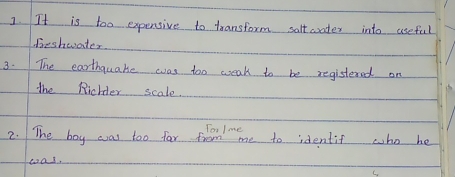 1. It is too expensive to transform salt water into useful
freshwater.
3. The earthquake was too weak to be registered on
the Richter scale.
For/me
2. The boy was too far from me to identif who he
was.